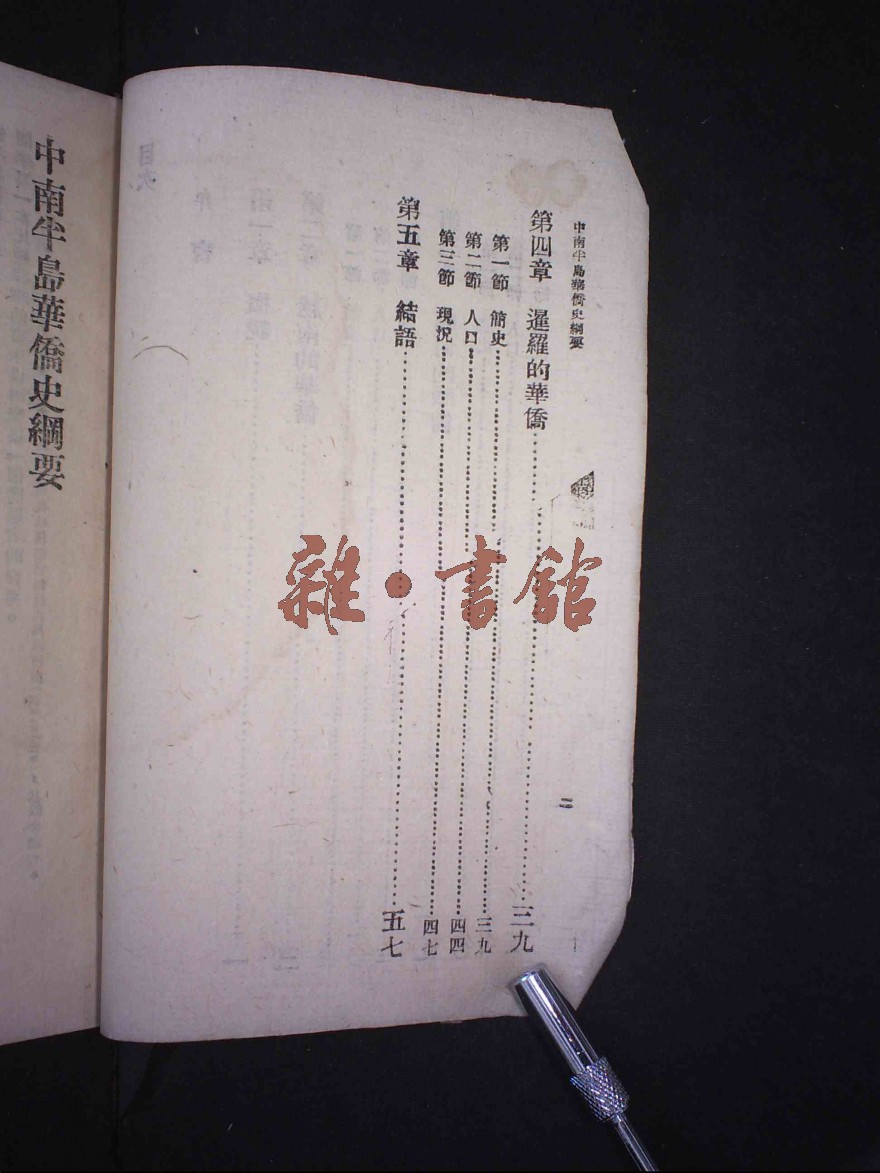 中南半島華僑史綱要
第四章　暹羅的華僑……三九
第一節　簡史……三九
第二節　人口……四四
第三節　現況……四七
第五章　結語……五七
二
雜・書館
中南半島華僑史綱要